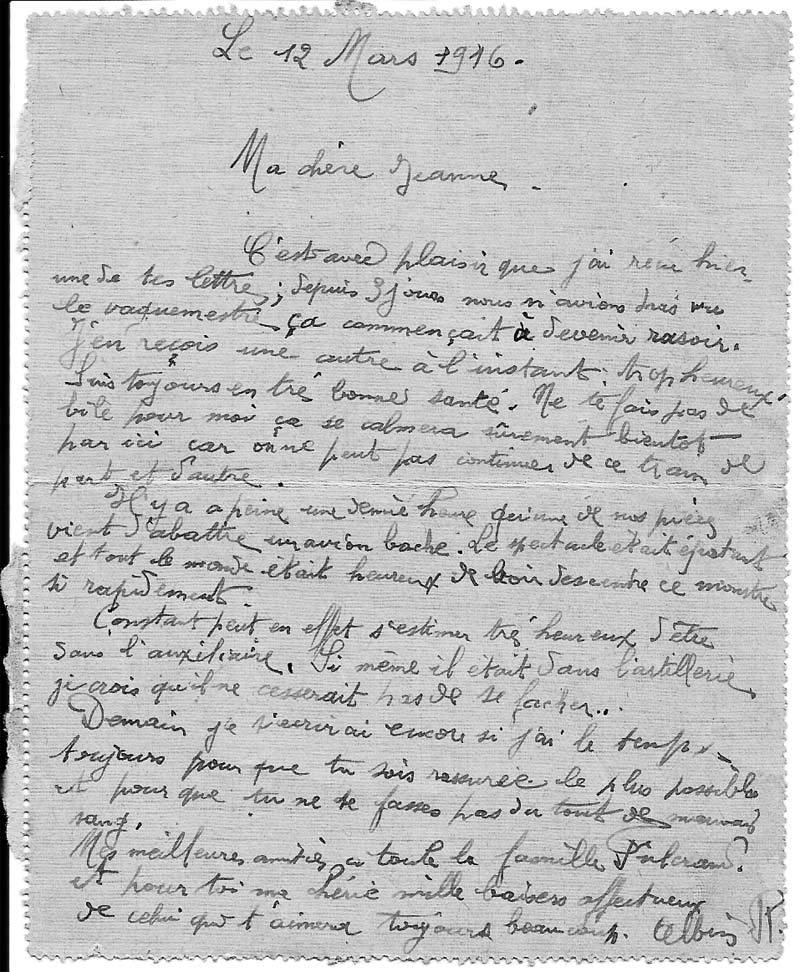 Le 12 Mars 1916.
Ma chère Jeanne.
C'est avec plaisir que j'ai reçu hier
une de tes lettre, ; depuis 3 jours nous n'avions pas vu
le vaguemestre ça commençait à devenir rasoir.
J'en reçois une autre à l'instant ; trop heureux.
Suis toujours en tré bonne santé. Ne te fais pas de
bile pour moi ça se calmera sûrement bientot
par ici car on ne peut pas continuer de ce train de
part et d'autre.
Il y a a peine une demie heure qu'une de nos pièces
vient d'abattre un avion boche. Le spectacle était épatant
et tout le monde etait heureux de voir descendre ce monstre
si rapidement.
Constant peut en effet s'estimer tré heureux d'être
dans l'auxiliaire. Si même il était dans l'artillerie
je crois qu'il ne cesserait pas de se facher...
Demain je t'ecrirai encore si j'ai le temps
toujours pour que tu sois rassurée le plus possible
et pour que tu ne te fasses pas du tout de mauvais
sang.
Mes meilleures amitiés a toute la famille
et pour toi ma chérie mille baisers affectueux
de celui qui t'aimera toujours beaucoup. Albin